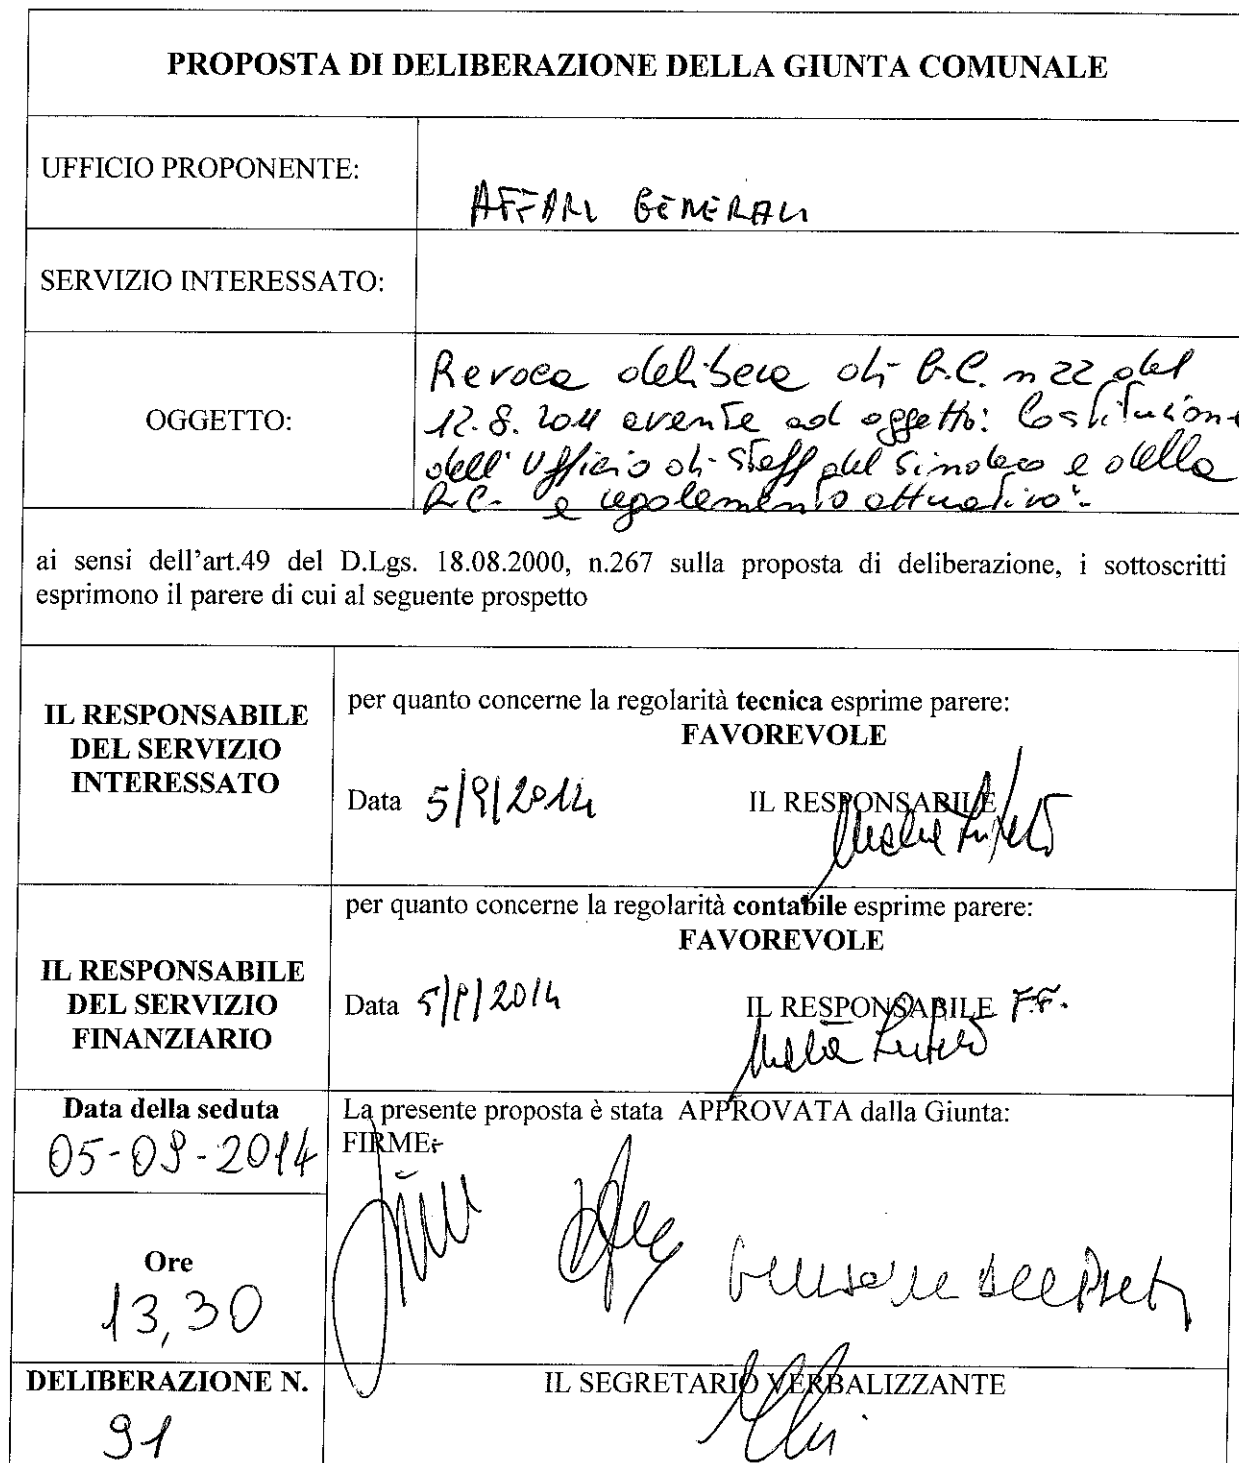 PROPOSTA DI DELIBERAZIONE DELLA GIUNTA COMUNALE
UFFICIO PROPONENTE:
AFFARI GENERALI
SERVIZIO INTERESSATO:
OGGETTO:
Revoca delibera di G.C. n 22 del
12.8.2011 avente ad oggetto: Costituzione
dell'Ufficio di Staff del Sindaco e della
G.C. e regolamento attuativo".
ai sensi dell'art.49 del D.Lgs. 18.08.2000, n.267 sulla proposta di deliberazione, i sottoscritti
esprimono il parere di cui al seguente prospetto
IL RESPONSABILE
DEL SERVIZIO
INTERESSATO
per quanto concerne la regolarità tecnica esprime parere:
FAVOREVOLE
Data 5/9/2014
IL RESPONSABILE
IL RESPONSABILE
DEL SERVIZIO
FINANZIARIO
per quanto concerne la regolarità contabile esprime parere:
FAVOREVOLE
Data 5/9/2014
IL RESPONSABILE F.F.
Data della seduta
05-09-2014
Ore
13,30
La presente proposta è stata APPROVATA dalla Giunta:
FIRME:
DELIBERAZIONE N.
91
IL SEGRETARIO VERBALIZZANTE